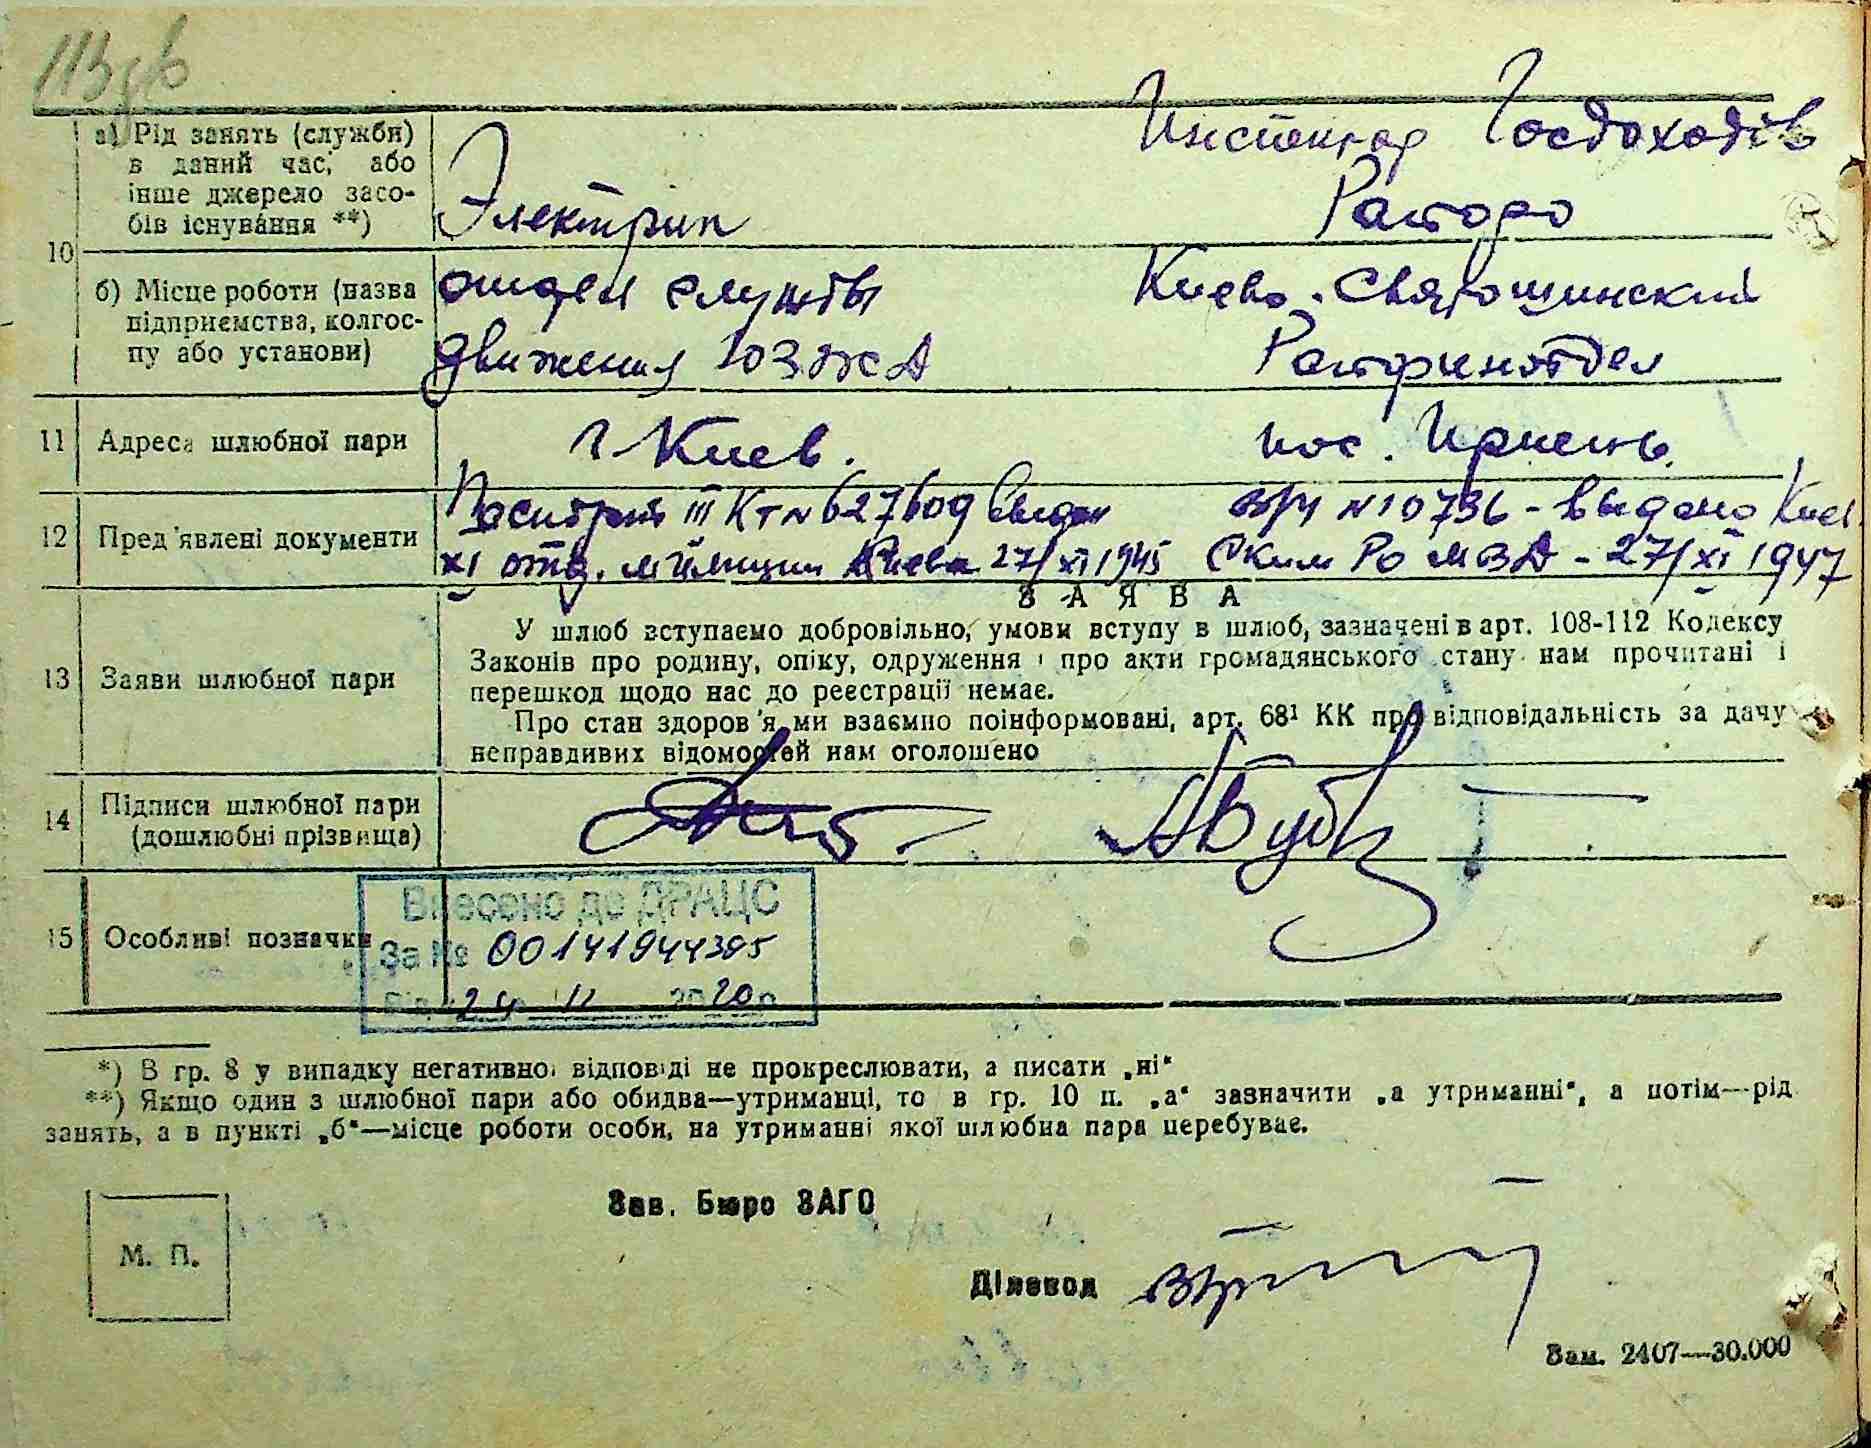 а) Рід занять (служби) в даний час, або інше джерело засобів існування **)
Электрик
Инспектор Госдоходів
10
б) Місце роботи (назва підприємства, колгоспу або установи)
отдел службы
движения ЮЗЖД
Киево-Святошинский
Райфинотдел
11 Адреса шлюбної пари
г. Киев.
пос. Ирпень.
12 Пред'явлені документи
Паспорт III КТ № 627609 выдан
XI отд. милиции Киева 27/XI 1945
№ 10736 - выдано Киев
Ским РО МВД - 27/XI 1947
ЗАЯВА
13 Заяви шлюбної пари
У шлюб вступаємо добровільно, умови вступу в шлюб, зазначені в арт. 108-112 Кодексу
Законів про родину, опіку, одруження і про акти громадянського стану нам прочитані і
перешкод щодо нас до реєстрації немає.
Про стан здоров'я ми взаємно поінформовані, арт. 68¹ КК про відповідальність за дачу
неправдивих відомостей нам оголошено
14 Підписи шлюбної пари
(дошлюбні прізвища)
15 Особливі позначки
Внесено до ДРАЦС
За № 00141944395
Від 24 11 2020р
*) В гр. 8 у випадку негативної відповіді не прокреслювати, а писати „ні“
**) Якщо один з шлюбної пари або обидва—утриманці, то в гр. 10 п. „а“ зазначити „а утриманні“, а потім—рід
занять, а в пункті „б“—місце роботи особи, на утриманні якої шлюбна пара перебуває.
Зав. Бюро ЗАГС
М. П.
Діловод
Зам. 2407—30.000